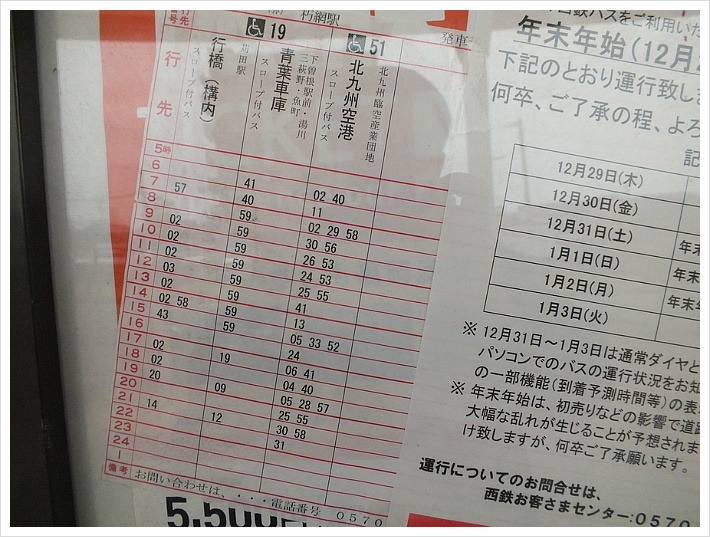 行先
番号
朽網駅
発車
行先
行橋(構内)
スロープ付バス
19
苅田駅
青葉車庫
スロープ付バス
下曽根駅前・湯川
三萩野・魚町
51
北九州空港
スロープ付バス
北九州臨空産業団地
5時
6
7 57 41 02 40
8 40 11
9 02 59 02 29 58
10 02 59 30 56
11 02 59 26 53
12 03 59 24 53
13 02 59 25 55
14 02 58 59 41
15 43 59 13
16 05 33 52
17 02 24
18 02 19 06 41
19 20 04 40
20 09 05 28 57
21 14 25 55
22 12 30 58
23 31
24
1
備考
お問い合わせは、・・・電話番号 0570
5,500円
西鉄バスをご利用いた
年末年始(12月2
下記のとおり運行致しま
何卒、ご了承の程、よろ
記
12月29日(木)
12月30日(金)
12月31日(土) 年末
1月1日(日) 年末
1月2日(月) 年末
1月3日(火)
※ 12月31日～1月3日は通常ダイヤと
パソコンでのバスの運行状況をお知
の一部機能(到着予測時間等)の表
※ 年末年始は、初売りなどの影響で道路
大幅な乱れが生じることが予想されま
け致しますが、何卒ご了承願います。
運行についてのお問合せは、
西鉄お客さまセンター:0570